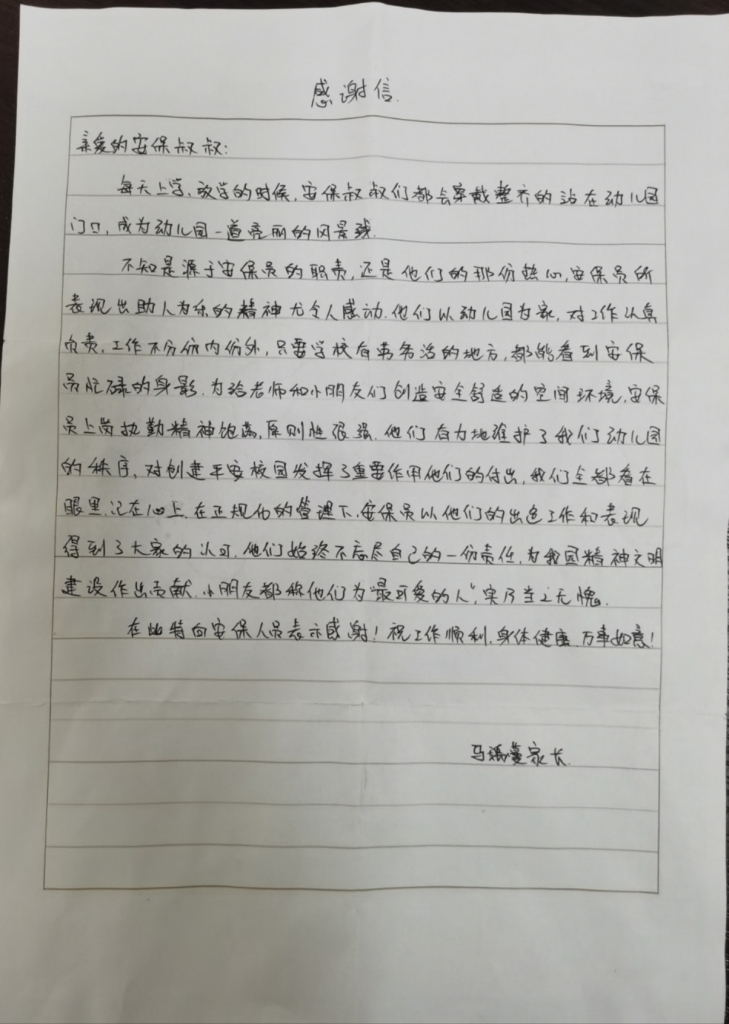 感谢信.
亲爱的安保叔叔:
每天上学、放学的时候,安保叔叔们都会穿戴整齐的站在幼儿园
门口,成为幼儿园一道亮丽的风景线.
不知是源于安保员的职责,还是他们的那份热心,安保员所
表现出助人为乐的精神尤令人感动.他们以幼儿园为家,对工作认真
负责,工作不分份内份外,只要学校有事务活的地方,都能看到安保
员忙碌的身影.为给老师和小朋友们创造安全舒适的空间环境,安保
员上岗执勤精神饱满,原则性很强.他们有力地维护了我们幼儿园
的秩序,对创建平安校园发挥了重要作用他们的付出,我们全都看在
眼里,记在心上.在正规化的管理下,安保员以他们的出色工作和表现
得到了大家的认可.他们始终不忘尽自己的一份责任,为我园精神文明
建设作出贡献.小朋友都称他们为"最可爱的人",实乃当之无愧.
在此特向安保人员表示感谢!祝工作顺利,身体健康.万事如意!
马 蔓家长.